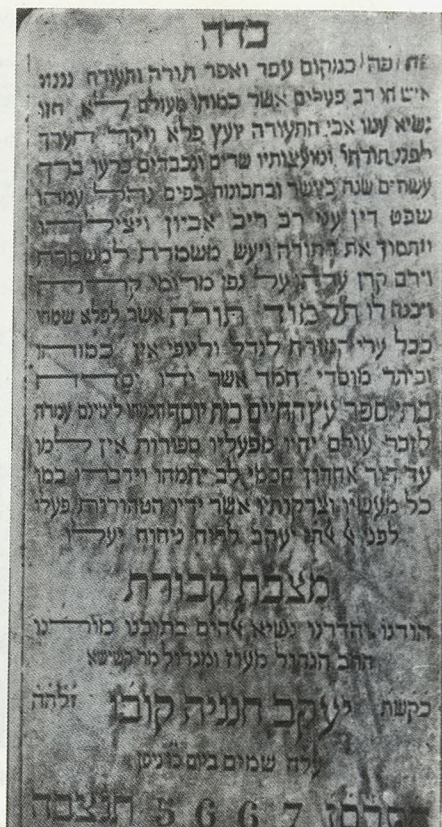 כדה
במקום עפר ואפר תורה ותעודה
רב פעלים אשר כמוהו מעולם לא חזו
נשיא עמו אבי התעודה יועץ פלא ויקר הערך
לפני תורתו ומועצותיו שרים ונכבדים כרעו ברך
עשתים שנה ביושר ובתבונות כפים נהל עמהו
שפט דין עני רב ריב אביון ויצילהו
ויתמוך את התורה ויעש משמרת למשמרת
וירם קרן עדה על גפי מרומי קרת
ויבנה לו תלמוד תורה אשר לפלא שמהו
בכל ערי המזרח לגדל וליופי אין כמוהו
וביתר מוסדי חמד אשר ידיו יסדו
בתי ספר עץ החיים בית יוסף לימינם עמדה
לזכר עולם יהיו מפעליו ספורות אין למו
עד דור אחרון חכמי לב יתמהו וידברו במו
כל מעשיו וצדקותיו אשר ידיו הטהורות פעלו
לפני יעקב לריח ניחוח יעלו
מצבת קבורת
הודנו והדרנו נשיא אלהים בתוכנו מורנו
הרב הגדול מעוז ומגדול מר קשישא
בקשת יעקב חנניה קובו זלהה
עלה שמים ביום כו ניסן
5 6 6 7 תנצבה